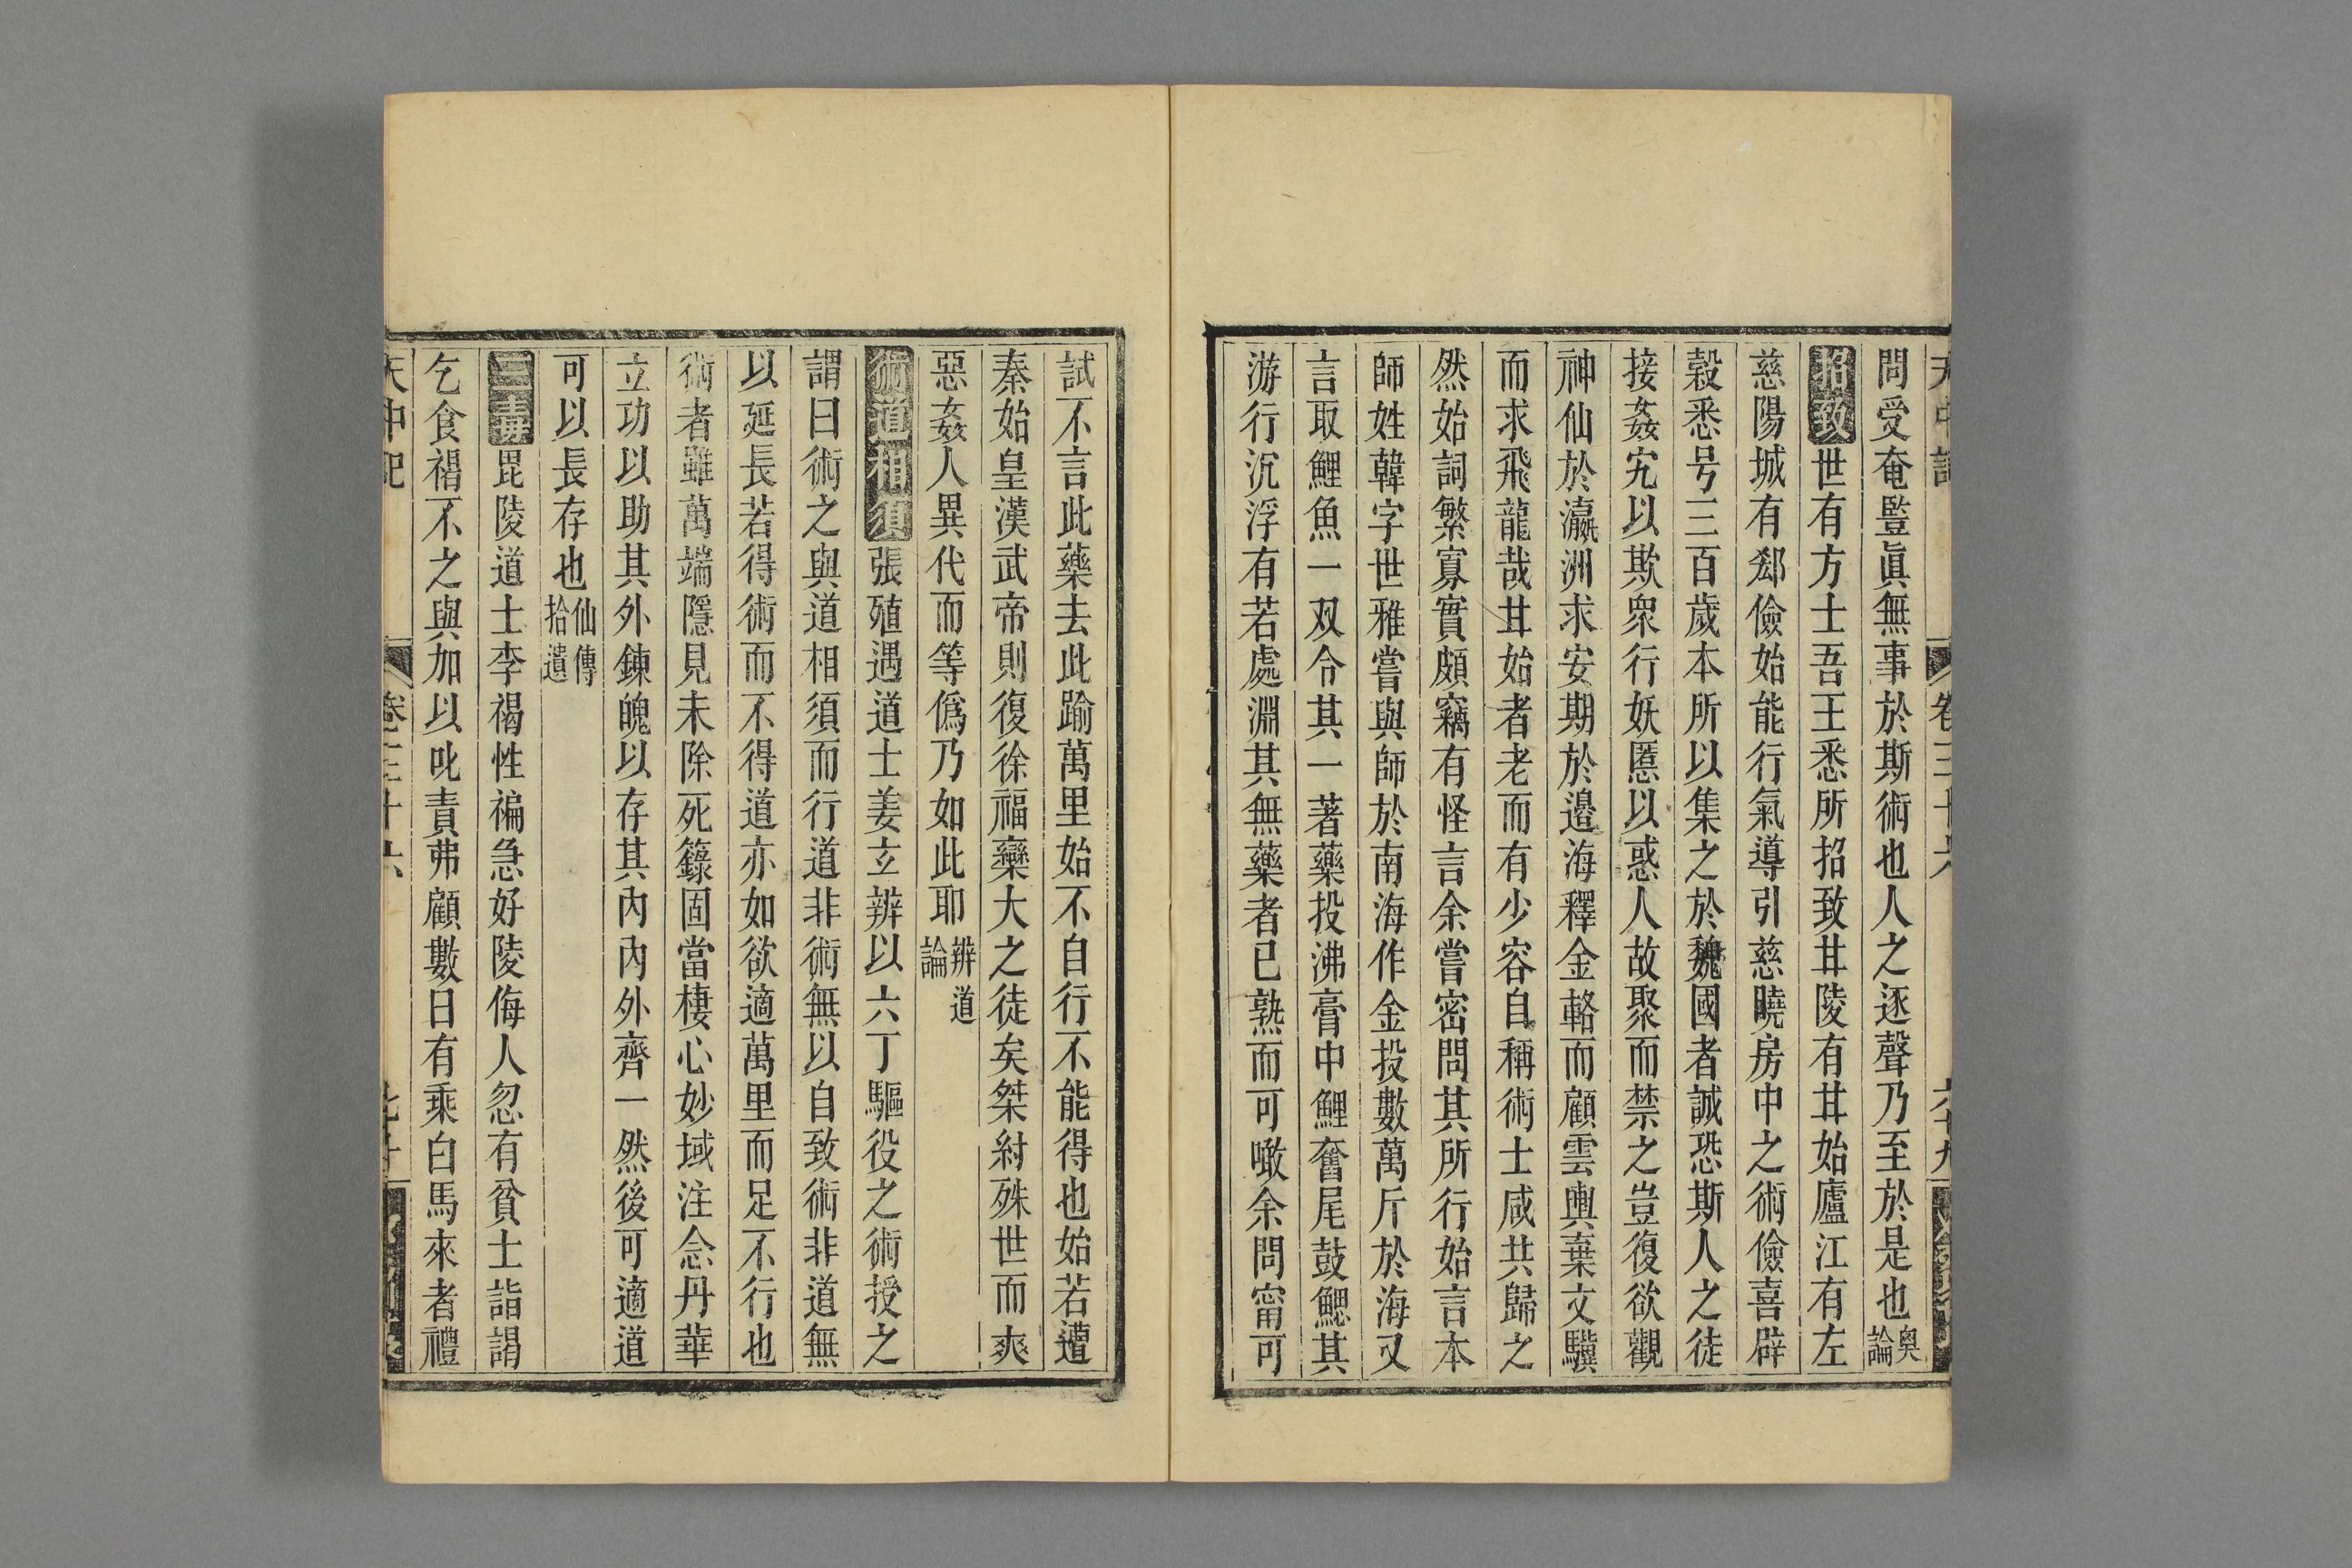 天中記 卷三十六 六十九
問受奄豎眞無事於斯術也人之逐聲乃至於是也奥論
招致世有方士吾王悉所招致甘陵有甘始廬江有左
慈陽城有郄儉始能行氣導引慈曉房中之術儉喜辟
穀悉号三百歲本所以集之於魏國者誠恐斯人之徒
接姦宄以欺衆行妖慝以惑人故聚而禁之豈復欲觀
神仙於瀛洲求安期於邉海釋金輅而顧雲輿棄文驥
而求飛龍哉甘始者老而有少容自稱術士咸共歸之
然始詞繁寡實頗竊有怪言余嘗密問其所行始言本
師姓韓字世雅嘗與師於南海作金投數萬斤於海又
言取鯉魚一双令其一著藥投沸膏中鯉奮尾鼓鰓其
游行沉浮有若處淵其無藥者已熟而可噉余問甯可
試不言此藥去此踰萬里始不自行不能得也始若遭
秦始皇漢武帝則復徐福欒大之徒矣桀紂殊世而爽
惡姦人異代而等僞乃如此耶辨道論
術道相須張殖遇道士姜玄辨以六丁驅役之術授之
謂曰術之與道相須而行道非術無以自致術非道無
以延長若得術而不得道亦如欲適萬里而足不行也
術者雖萬端隱見未除死籙固當棲心妙域注念丹華
立功以助其外鍊魄以存其內內外齊一然後可適道
可以長存也仙傳拾遺
三毒毘陵道士李褐性褊急好陵侮人忽有貧士詣謁
乞食褐不之與加以叱責弗顧數日有乘白馬來者禮
天中記 卷三十六 七十